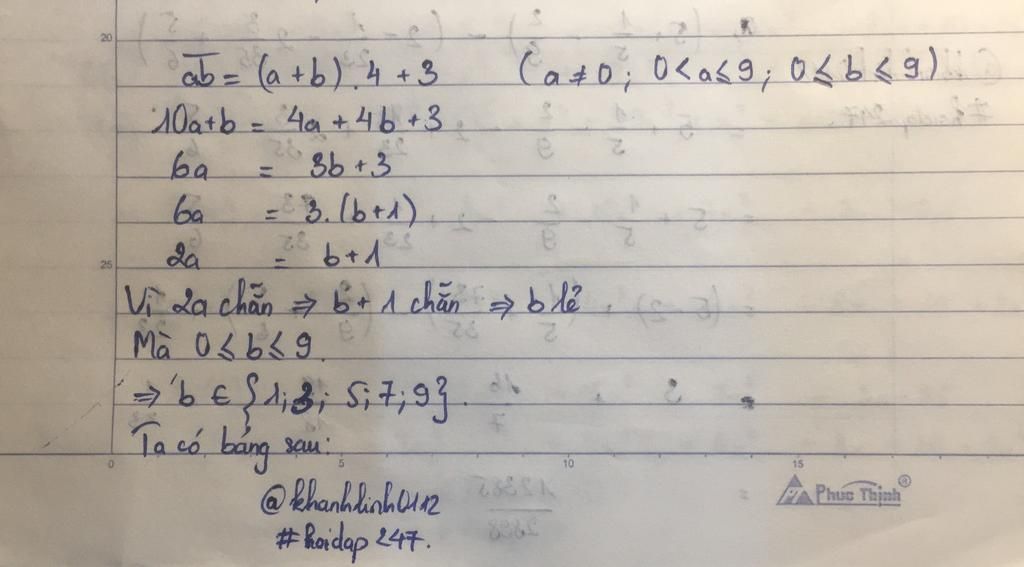 20
ab = (a+b).4+3 (a≠0; 0<a≤9; 0≤b≤9)
10a+b = 4a+4b+3
6a = 3b+3
6a = 3.(b+1)
25
2a = b+1
Vì 2a chẵn ⇒ b+1 chẵn ⇒ b lẻ
Mà 0≤b≤9.
⇒ b ∈ {1;3; 5;7;9}.
Ta có bảng sau:
0 5 10 15
Phuc Thinh®
@khanhlinh0112
#hoidap247.